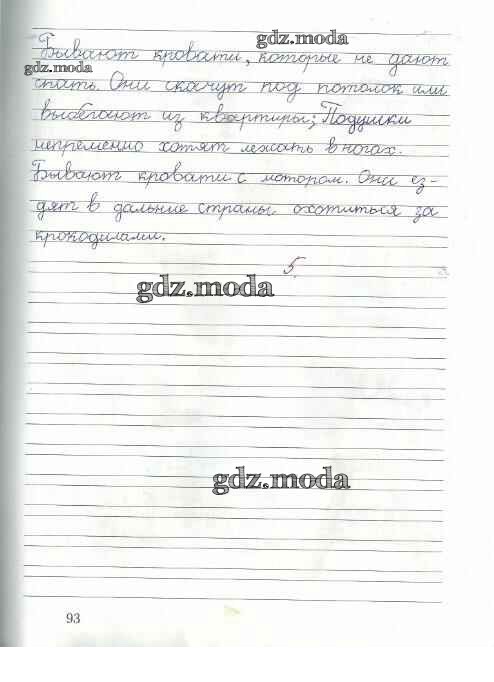 gdz.moda
Бывают кровати, которые не дают
gdz.moda
спать. Они скачут под потолок или
выбегают из квартиры; Подушки
непременно хотят лежать в ногах.
Бывают кровати с мотором. Они ез-
дят в дальние страны охотиться за
крокодилами.
5.
gdz.moda
gdz.moda
93